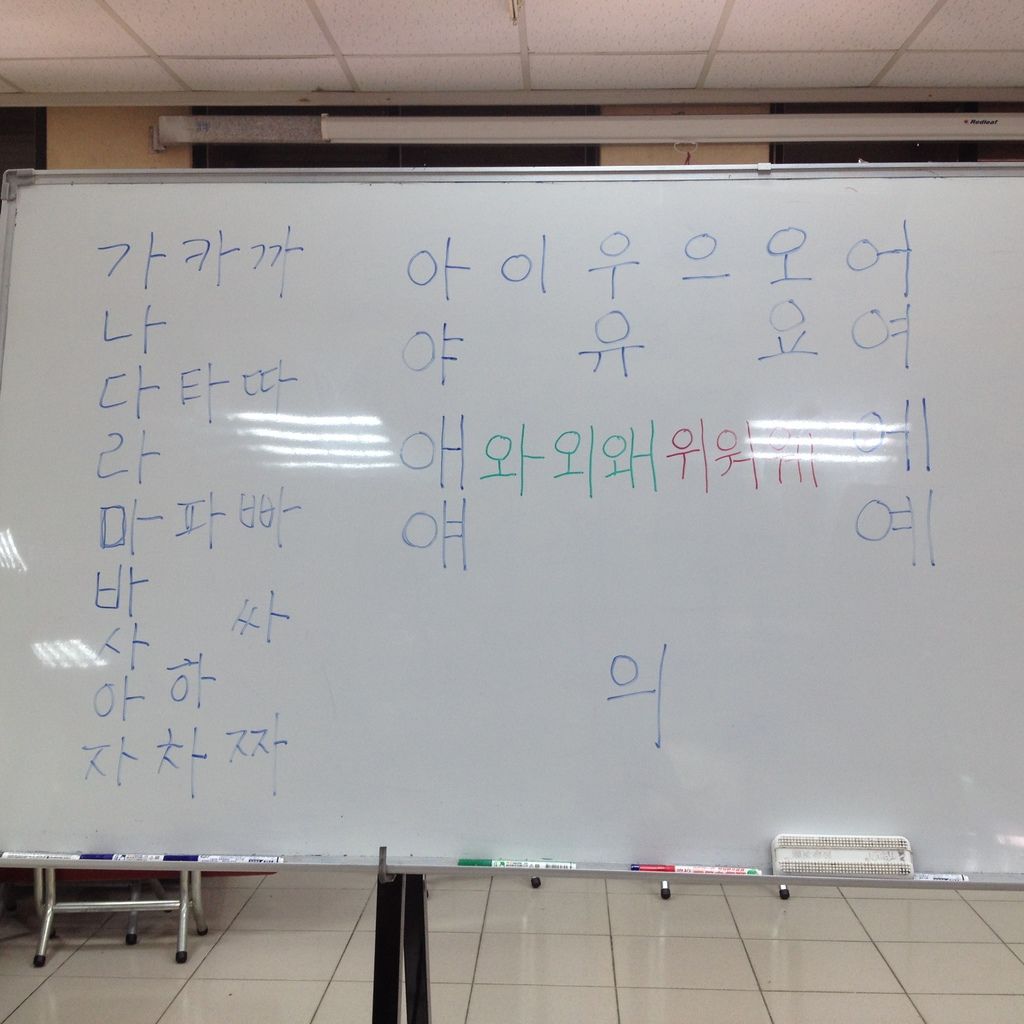 Redleaf
가 카 까
나
다 타 따
라
마 파 빠
바
사 싸
아 하
자 차 짜
아 이 우 으 오 어
야 유 요 여
애 와 외 왜 위 워 웨 에
얘 예
의